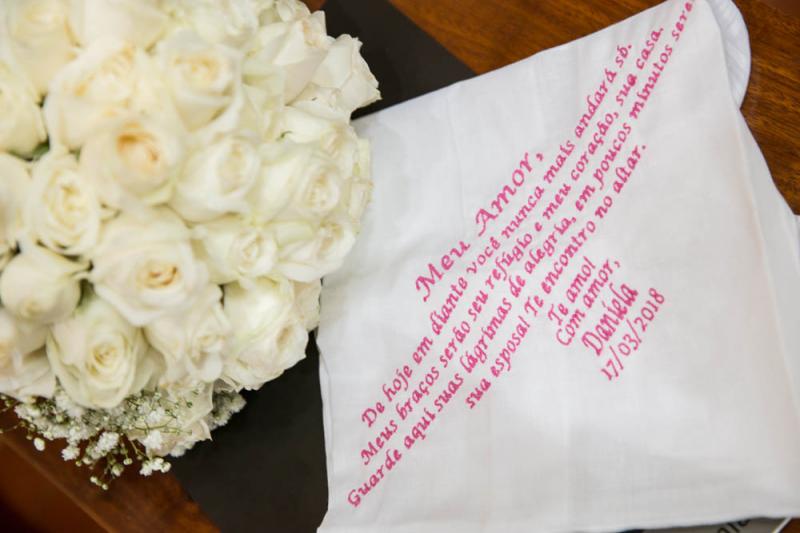 Meu Amor,
De hoje em diante você nunca mais andará só.
Meus braços serão seu refúgio e meu coração, sua casa.
Guarde aqui suas lágrimas de alegria, em poucos minutos sere
sua esposa! Te encontro no altar.
Te amo!
Com amor,
Daniela
17/03/2018